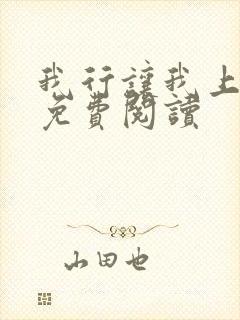 我行讓我上
免費閱讀
山田也